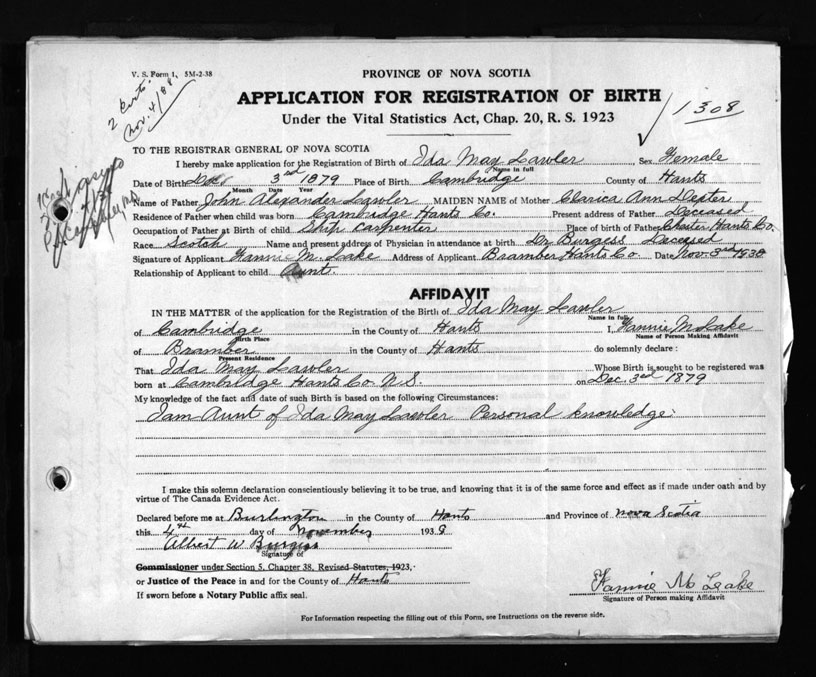 V. S. Form 1, 5M-2-38
PROVINCE OF NOVA SCOTIA
2 Certs.
Nov. 4/38
APPLICATION FOR REGISTRATION OF BIRTH
1308
Under the Vital Statistics Act, Chap. 20, R. S. 1923
TO THE REGISTRAR GENERAL OF NOVA SCOTIA
I hereby make application for the Registration of Birth of Ida May Lawler Sex Female
Name in full
Date of Birth Dec. 3rd 1879 Place of Birth Cambridge County of Hants
Month Date Year
Name of Father John Alexander Lawler MAIDEN NAME of Mother Clarica Ann Dexter
Residence of Father when child was born Cambridge Hants Co. Present address of Father Deceased
Occupation of Father at Birth of child Ship Carpenter Place of birth of Father Chester Hants Co.
Race Scotch Name and present address of Physician in attendance at birth Dr Burgess Deceased
Signature of Applicant Fannie M. Lake Address of Applicant Bramber Hants Co. Date Nov. 3rd 1938
Relationship of Applicant to child Aunt.
AFFIDAVIT
IN THE MATTER of the application for the Registration of the Birth of Ida May Lawler
Name in full
of Cambridge in the County of Hants I, Fannie M Lake
Birth Place Name of Person Making Affidavit
of Bramber in the County of Hants do solemnly declare :
Present Residence
That Ida May Lawler Whose Birth is sought to be registered was
born at Cambridge Hants Co N.S. on Dec. 3rd 1879
My knowledge of the fact and date of such Birth is based on the following Circumstances:
I am Aunt of Ida May Lawler Personal knowledge.
I make this solemn declaration conscientiously believing it to be true, and knowing that it is of the same force and effect as if made under oath and by
virtue of The Canada Evidence Act.
Declared before me at Burlington in the County of Hants and Province of Nova Scotia
this 4th day of November 1938
Albert W Burgess
Signature of
Commissioner under Section 5, Chapter 38, Revised Statutes, 1923,
or Justice of the Peace in and for the County of Hants
Fannie M Leake
If sworn before a Notary Public affix seal.
Signature of Person making Affidavit
For Information respecting the filling out of this Form, see Instructions on the reverse side.